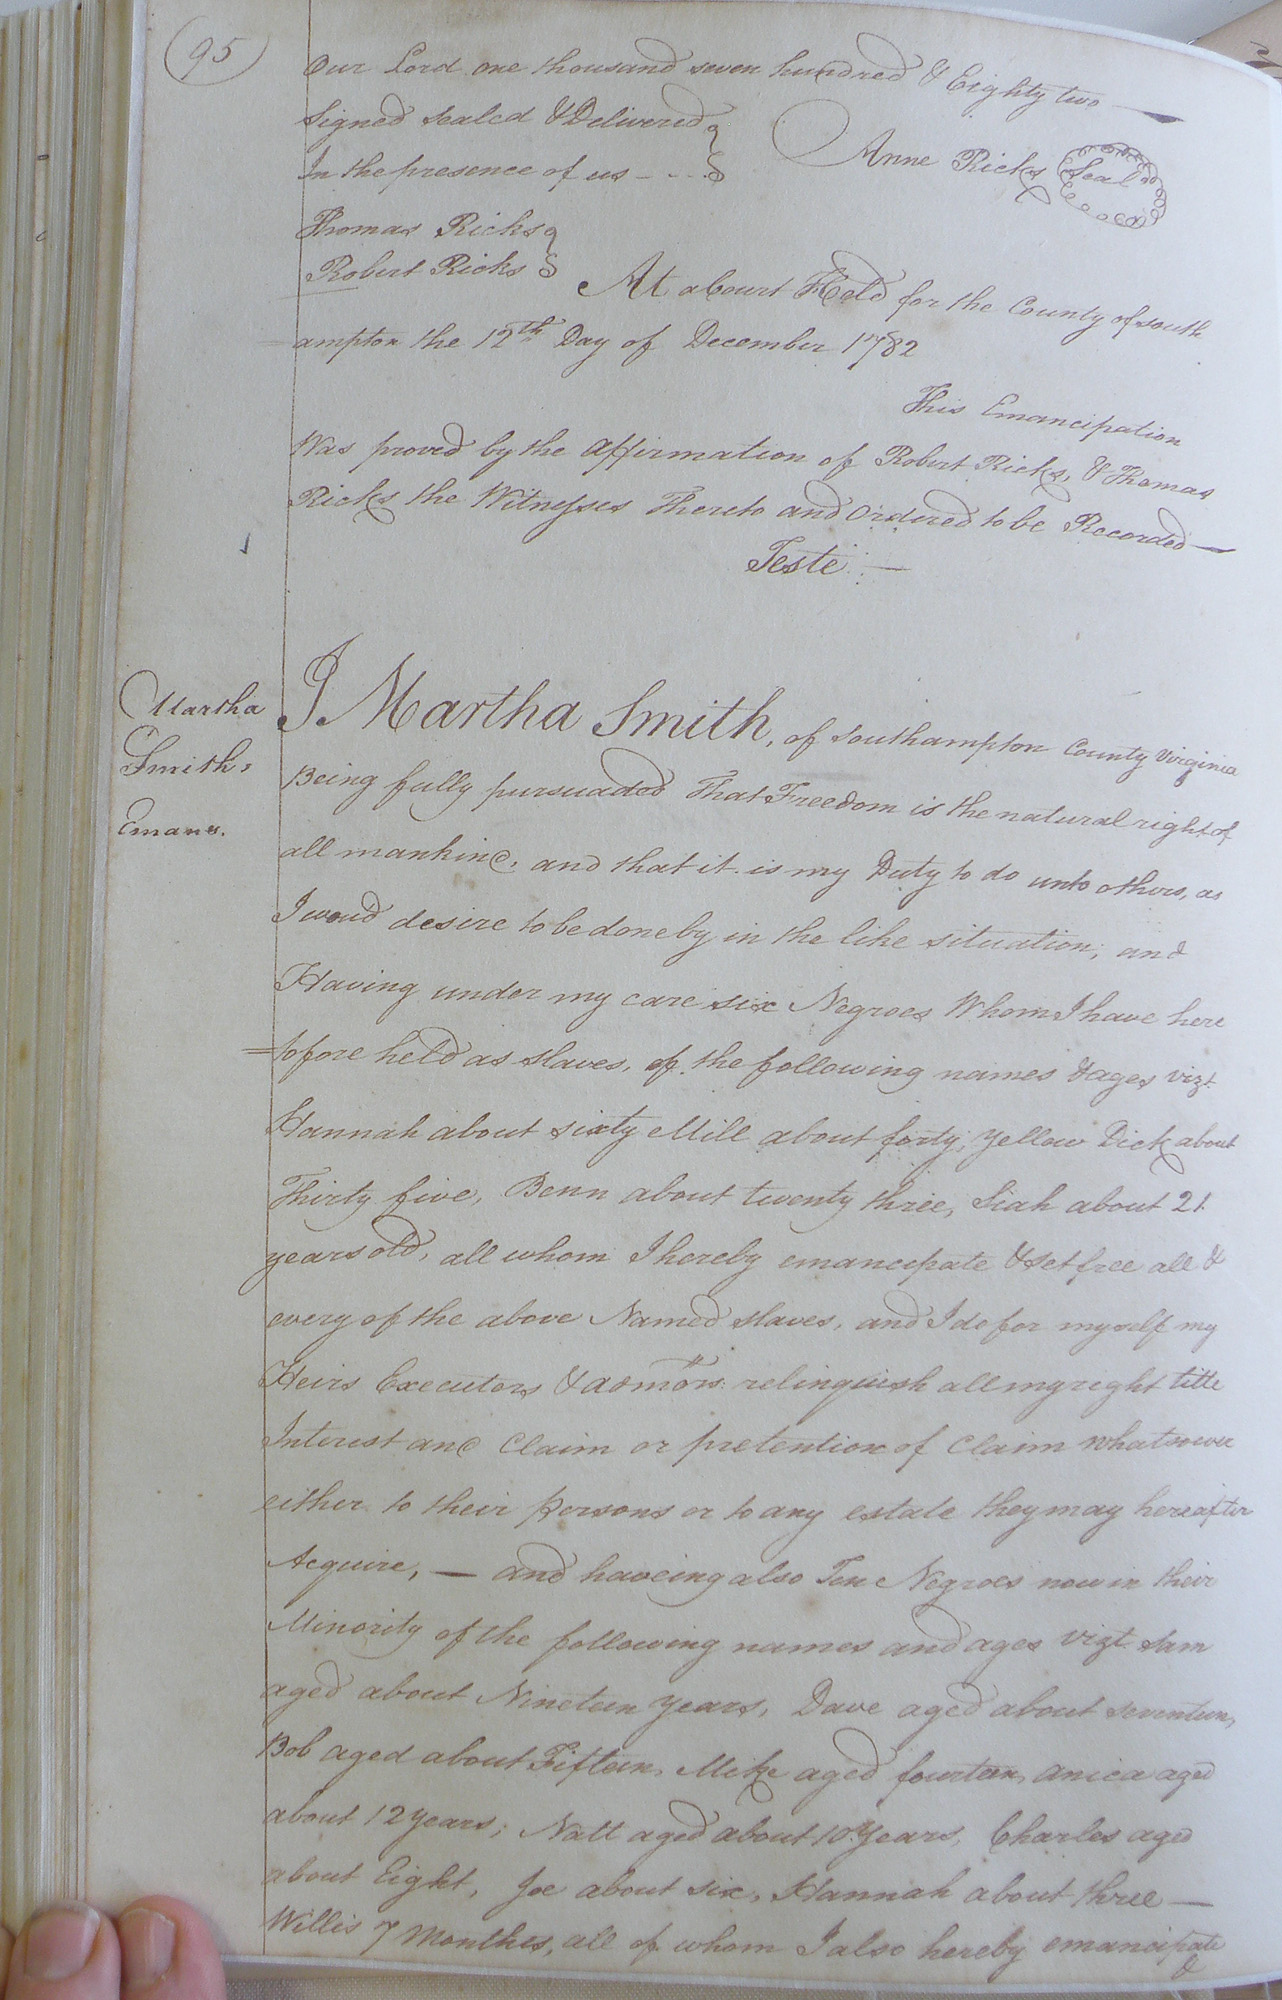 95
Our Lord one thousand seven hundred & Eighty two —
Signed Sealed & Delivered
In the presence of us - - - -
Anne Ricks Seal
Thomas Ricks
Robert Ricks
At a Court Held for the County of South
ampton the 12th Day of December 1782
This Emancipation
Was proved by the affirmation of Robert Ricks, & Thomas
Ricks the Witnesses Thereto and Ordered to be Recorded —
Teste —
Martha
Smith,
Eman.
I Martha Smith, of Southampton County Virginia
Being fully pursuaded That Freedom is the natural right of
all mankind, and that it is my Duty to do unto others, as
I woud desire to be done by in the like situation; and
Having under my care six Negroes Whom I have here
=tofore held as slaves, of the following names & ages vizt.
Hannah about sixty Mill about forty, Yellow Dick about
Thirty five, Benn about twenty three, Siah about 21
years old, all whom I hereby emancepate & set free all &
every of the above Named slaves, and I do for myself my
Heirs Executors & admors. relinquish all my right title
Interest and Claim or pretention of Claim whatsoever
either to their persons or to any estate they may hereafter
Acquire, — and haveing also Ten Negroes now in their
Minority of the following names and ages vizt. Sam
aged about Nineteen years, Dave aged about seventeen,
Bob aged about Fifteen, Mike aged fourteen, anica aged
about 12 years; Natt aged about 10 years, Charles aged
about Eight, Joe about six, Hannah about three —
Willis 7 Monthes, all of whom I also hereby emancipate
&